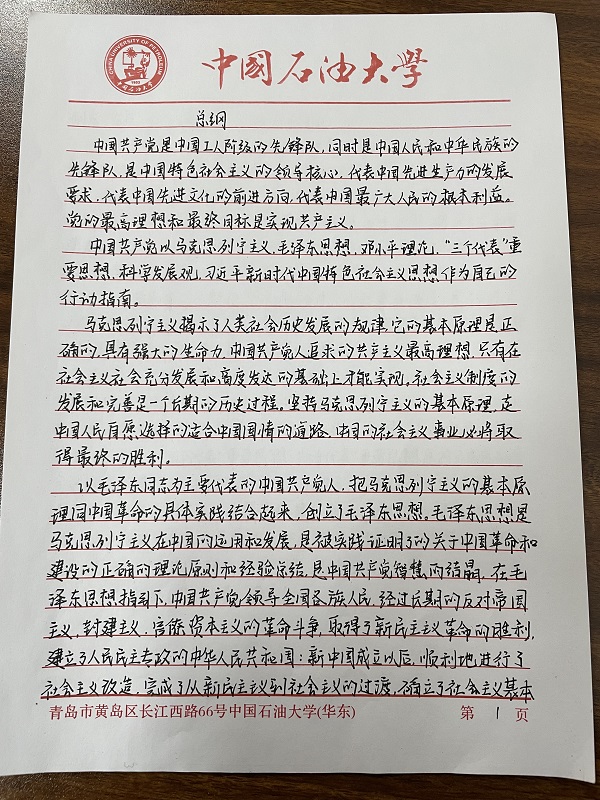 CHINA UNIVERSITY OF PETROLEUM
1953
中国石油大学
中國石油大學
总纲
中国共产党是中国工人阶级的先锋队,同时是中国人民和中华民族的
先锋队,是中国特色社会主义的领导核心,代表中国先进生产力的发展
要求,代表中国先进文化的前进方向,代表中国最广大人民的根本利益。
党的最高理想和最终目标是实现共产主义。
中国共产党以马克思列宁主义、毛泽东思想、邓小平理论、“三个代表”重
要思想、科学发展观、习近平新时代中国特色社会主义思想作为自己的
行动指南。
马克思列宁主义揭示了人类社会历史发展的规律,它的基本原理是正
确的,具有强大的生命力。中国共产党人追求的共产主义最高理想,只有在
社会主义社会充分发展和高度发达的基础上才能实现。社会主义制度的
发展和完善是一个长期的历史过程。坚持马克思列宁主义的基本原理,走
中国人民自愿选择的适合中国国情的道路,中国的社会主义事业必将取
得最终的胜利。
以毛泽东同志为主要代表的中国共产党人,把马克思列宁主义的基本原
理同中国革命的具体实践结合起来,创立了毛泽东思想。毛泽东思想是
马克思列宁主义在中国的运用和发展,是被实践证明了的关于中国革命和
建设的正确的理论原则和经验总结,是中国共产党智慧的结晶。在毛
泽东思想指引下,中国共产党领导全国各族人民,经过长期的反对帝国
主义、封建主义、官僚资本主义的革命斗争,取得了新民主主义革命的胜利,
建立了人民民主专政的中华人民共和国;新中国成立以后,顺利地进行了
社会主义改造,完成了从新民主主义到社会主义的过渡,确立了社会主义基本
青岛市黄岛区长江西路66号中国石油大学(华东) 第 1 页